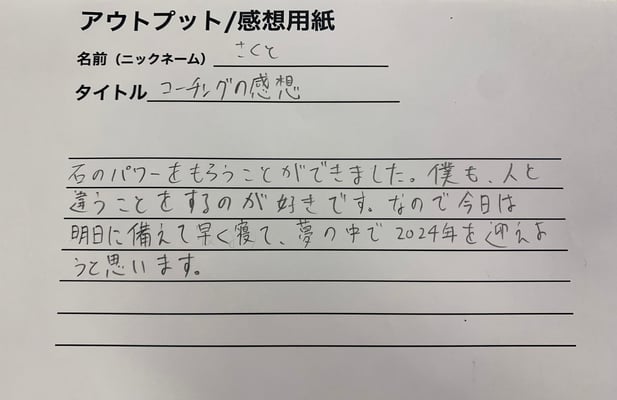 アウトプット/感想用紙
名前（ニックネーム） さくと
タイトル コーチングの感想
石のパワーをもろうことができました。僕も、人と
違うことをするのが好きです。なので今日は
明日に備えて早く寝て、夢の中で2024年を迎えよ
うと思います。